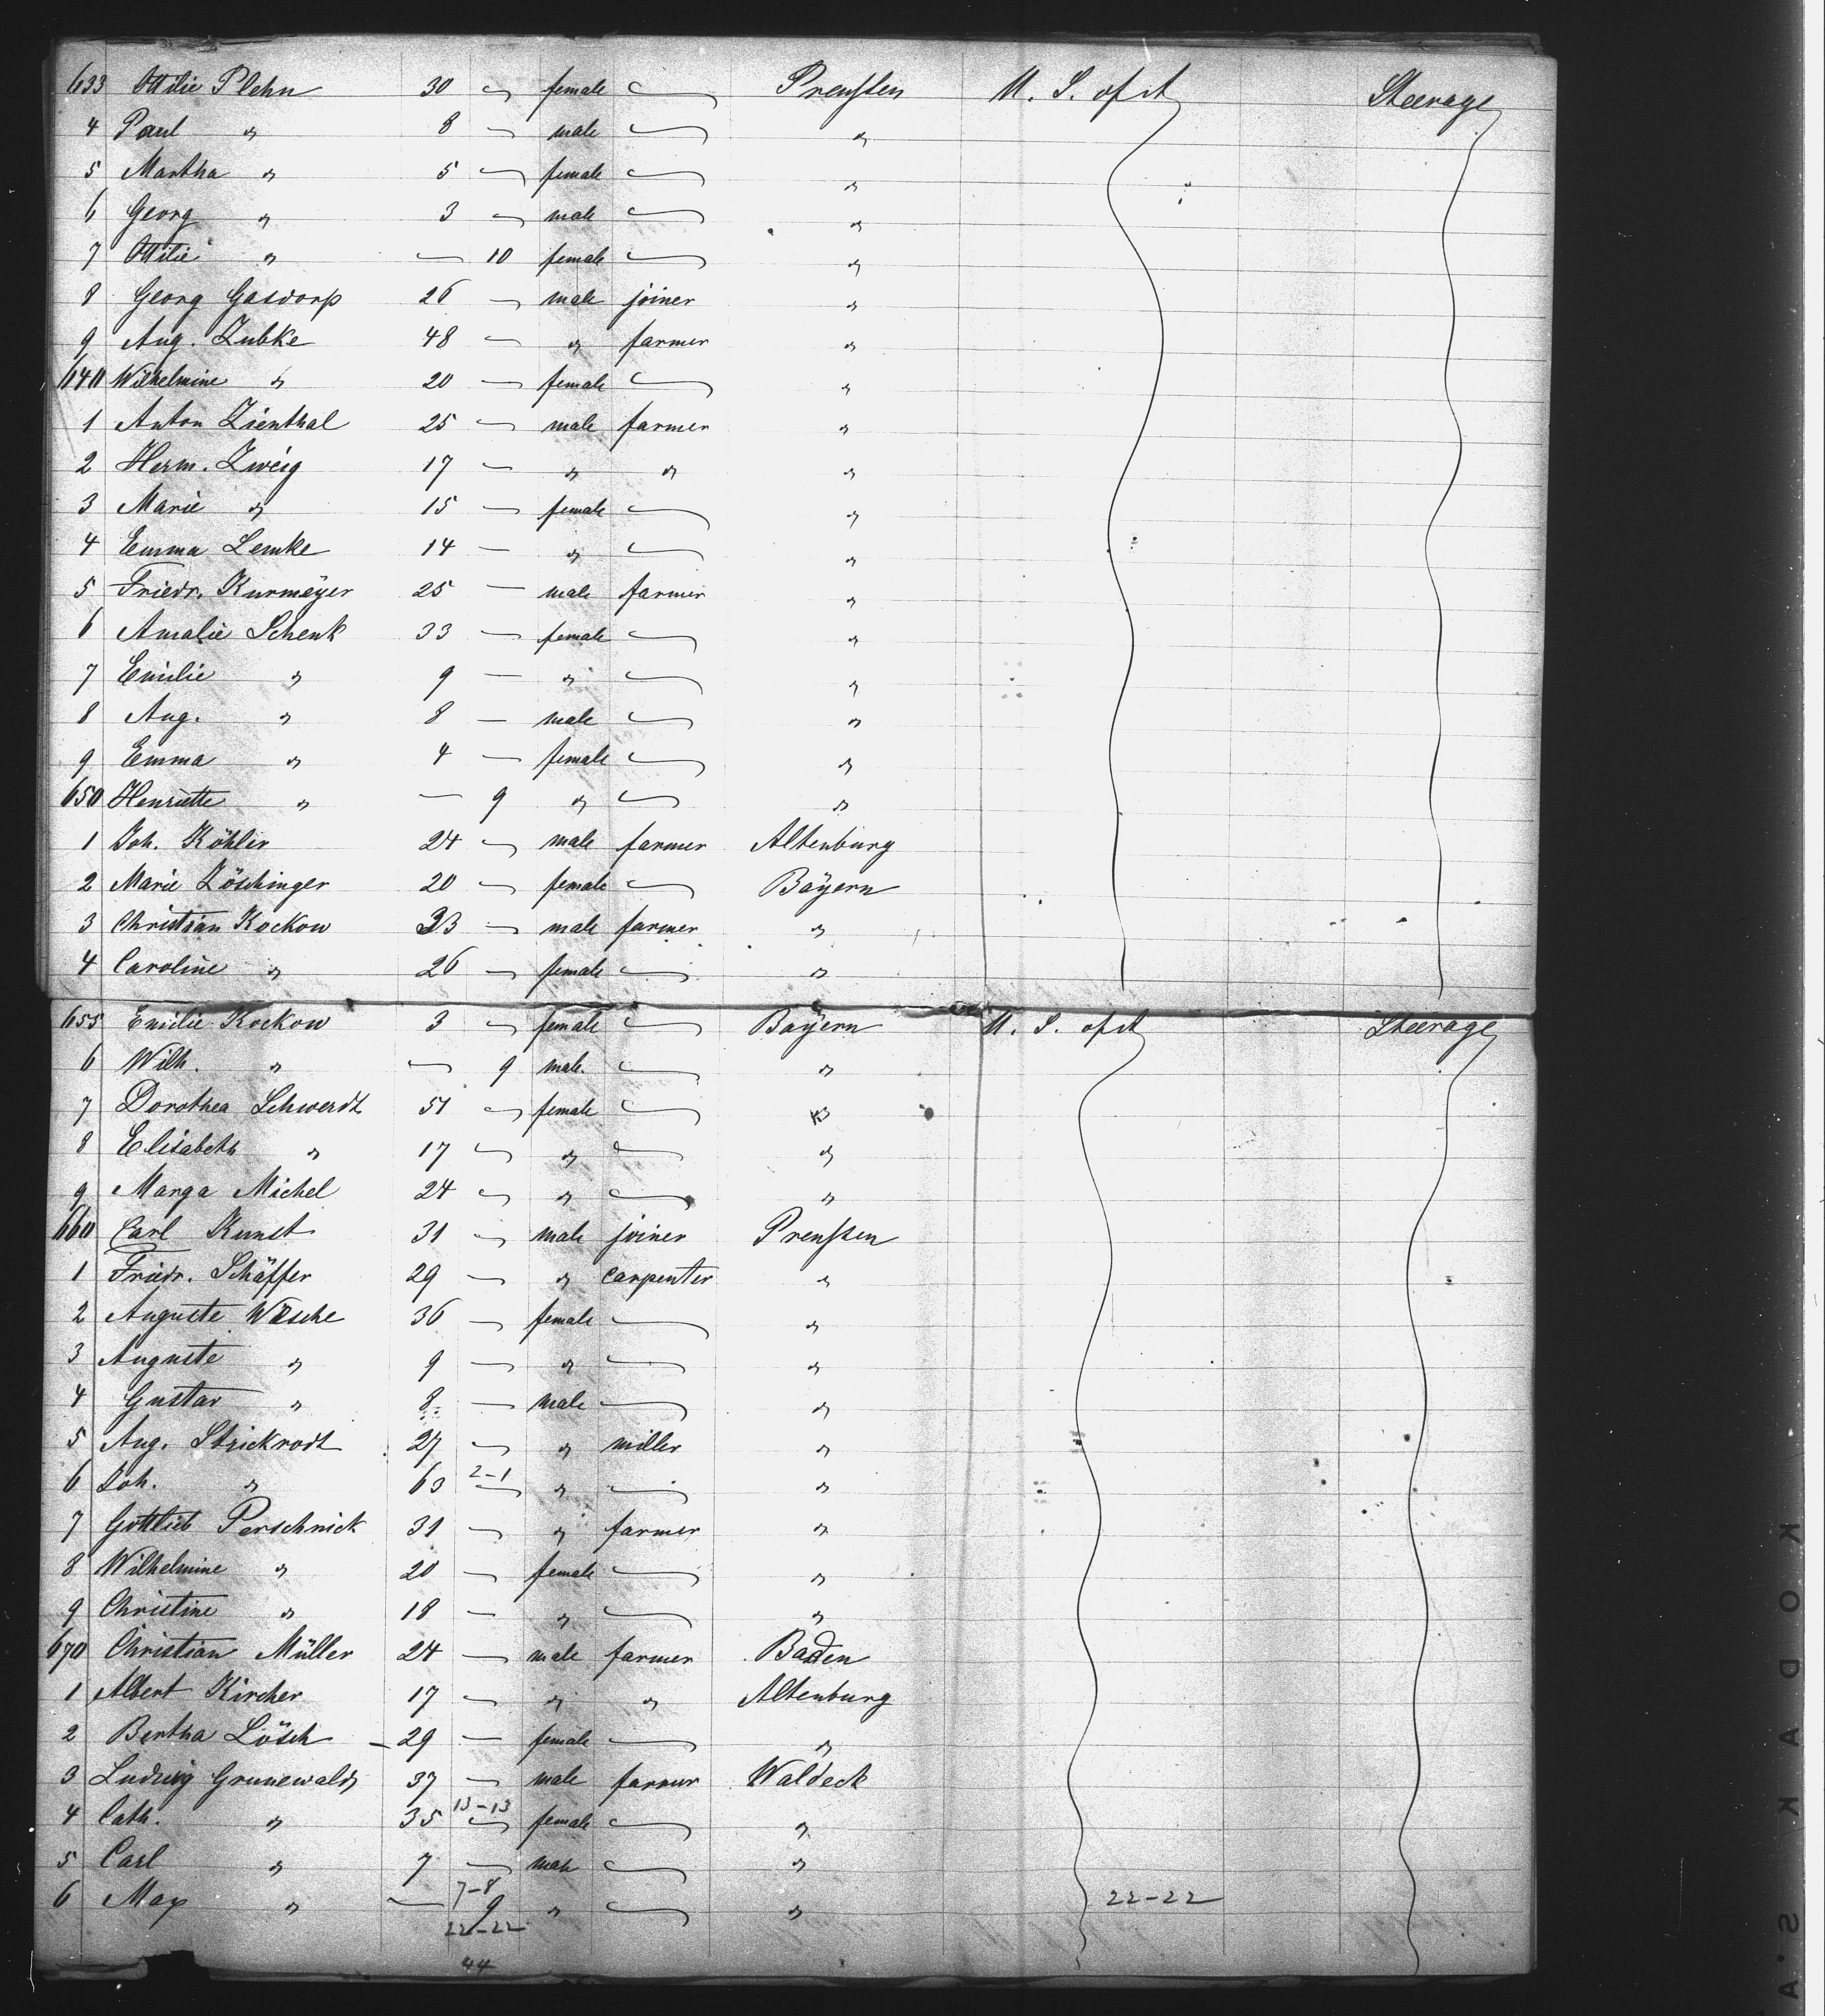 633 Ottilie Plehn 30 — female — Preußen U. S. of A Steerage
4 Paul " 8 — male — "
5 Martha " 5 — female — "
6 Georg " 3 — male — "
7 Ottilie " — 10 female — "
8 Georg Gasdorp 26 — male joiner "
9 Aug. Lubke 48 — " farmer "
640 Wilhelmine " 20 — female — "
1 Anton Lienthal 25 — male farmer "
2 Herm. Zweig 17 — " " "
3 Marie " 15 — female — "
4 Emma Lemke 14 — " — "
5 Friedr. Kurmeÿer 25 — male farmer "
6 Amalie Schenk 33 — female — "
7 Emilie " 9 — " — "
8 Aug. " 8 — male — "
9 Emma " 4 — female — "
650 Henriette " — 9 " — "
1 Joh. Köhler 24 — male farmer Altenburg
2 Marie Löschinger 20 — female — Baÿern
3 Christian Kockow 33 — male farmer "
4 Caroline " 26 — female — "
655 Emilie Kockow 3 — female — Baÿern U. S. of A Steerage
6 Wilh. " — 9 male — "
7 Dorothea Schwerdt 51 — female — "
8 Elisabeth " 17 — " — "
9 Marga Michel 24 — " — "
660 Carl Kunst 31 — male joiner Preußen
1 Friedr. Schäffer 29 — " carpenter "
2 Auguste Wasche 36 — female — "
3 Auguste " 9 — " — "
4 Gustav " 8 — male — "
5 Aug. Strickrodt 27 — " miller "
6 Joh. " 63 2-1 — " — "
7 Gottlieb Perschnick 31 — " farmer "
8 Wilhelmine " 20 — female — "
9 Christine " 18 — " — "
670 Christian Müller 24 — male farmer Baden
1 Albert Kircher 17 — " " Altenburg
2 Bertha Lösch 29 — female — "
3 Ludwig Grunewald 37 — male farmer Waldeck
4 Cath. " 35 13-13 — female — "
5 Carl " 7 — male — "
6 Max " — 7-8 9 " — " 22-22
22-22
44
KODAK S.A